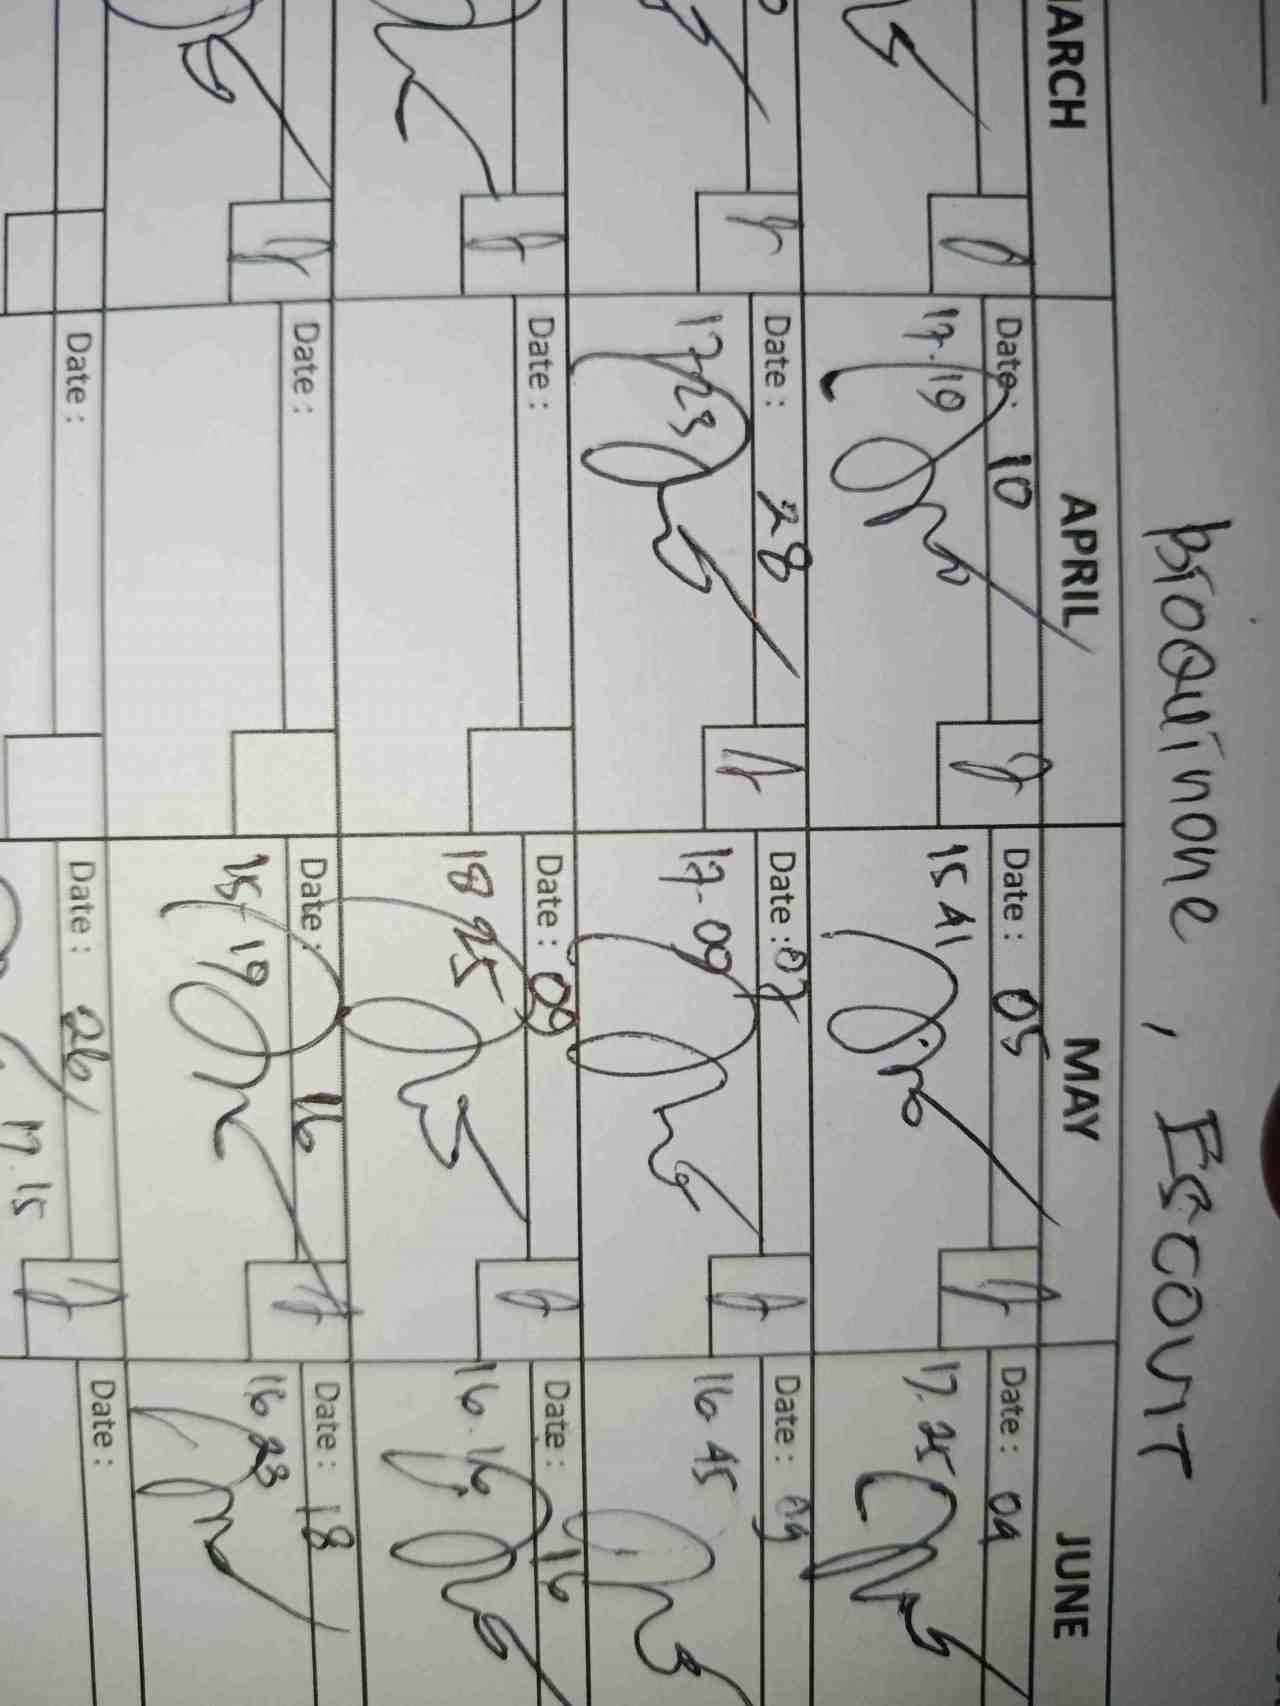 BIOQuinone , Escovit
MARCH APRIL MAY JUNE
Date: 10 Date: 05 Date: 04
17.19 15 41 17.25
Date: 28 Date: 07 Date: 09
17.23 17-09 16 45
Date: Date: 09 Date: 16
18 25 16.16
Date: Date: 16 Date: 18
15-19 16 23
Date: Date: 26 Date:
17.15